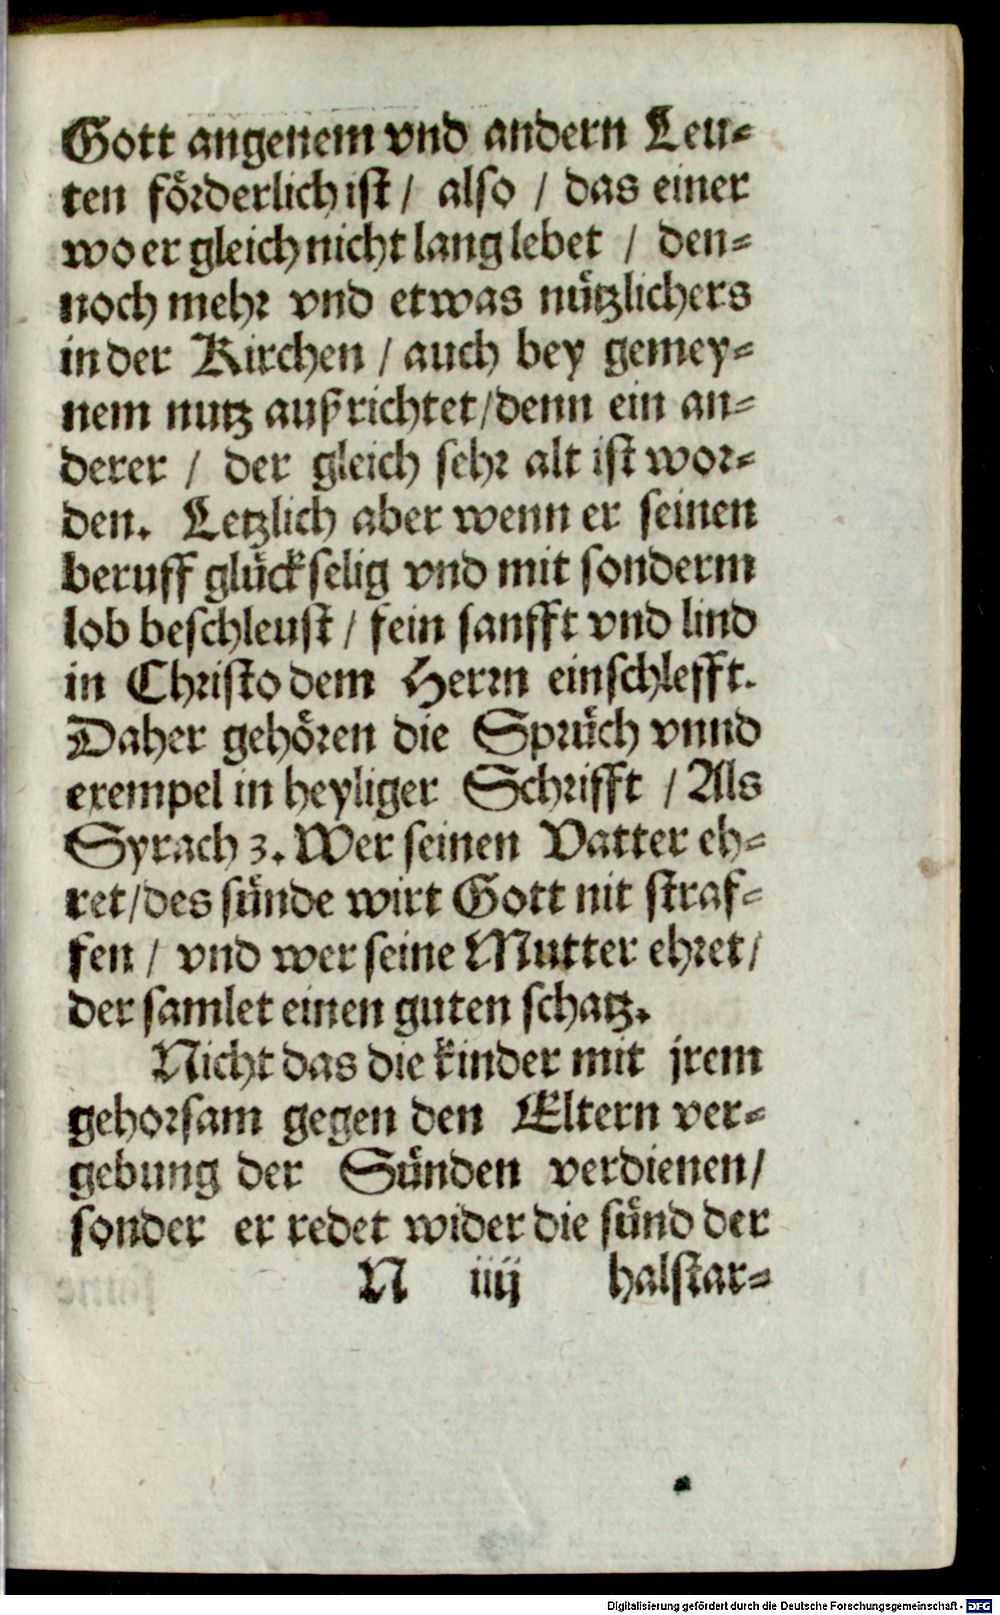 Gott angenem vnd andern Leu-
ten förderlich ist / also / das einer
wo er gleich nicht lang lebet / den-
noch mehr vnd etwas nützlichers
in der Kirchen / auch bey gemey-
nem nutz außrichtet/denn ein an-
derer / der gleich sehr alt ist wor-
den. Letzlich aber wenn er seinen
beruff glückselig vnd mit sonderm
lob beschleust / fein sanfft vnd lind
in Christo dem Herrn einschlefft.
Daher gehören die Sprüch vnnd
exempel in heyliger Schrifft / Als
Syrach 3. Wer seinen Vatter eh-
ret/des sünde wirt Gott nit straf-
fen / vnd wer seine Mutter ehret/
der samlet einen guten schatz.
Nicht das die kinder mit jrem
gehorsam gegen den Eltern ver-
gebung der Sünden verdienen/
sonder er redet wider die sünd der
N iiij halstar-
Digitalisierung gefördert durch die Deutsche Forschungsgemeinschaft - DFG